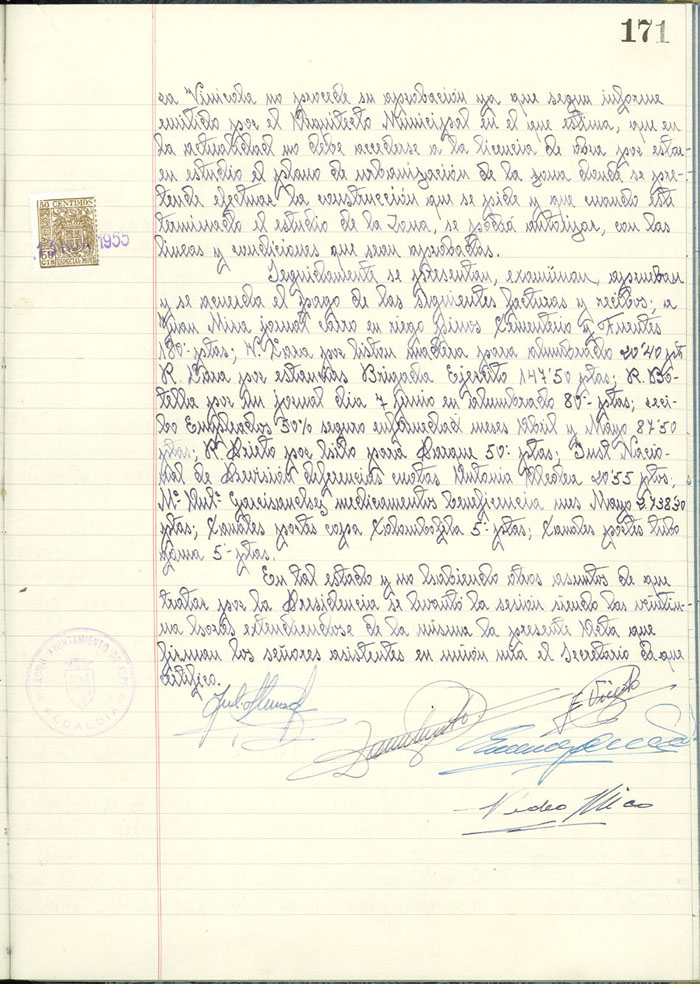 171
ra Vinicola no procede su aprobación ya que segun informe
emitido por el Arquitecto Municipal en el que estima, que en
la actualidad no debe accederse a la licencia de obra por estar
en estudio el plano de urbanización de la zona donde se pre-
tende efectuar la construcción que se pide y que cuando esté
terminado el estudio de la Zona, se podrá autorizar, con las
lineas y condiciones que sean aprobadas.
50 CENTIMOS
1955
ESPECIAL MOVIL
Seguidamente se presentan, examinan, aprueban
y se acuerda el pago de las siguientes facturas y recibos; a
Juan Mira jornal carro en riego pinos Cementerio y Fuentes
180'- ptas; Lara por liston madera para alumbrado 20'40 pts
R. Lara por estancias Brigada Ejercito 147'50 ptas; R. Bo-
tella por un jornal dia 7 Junio en alumbrado 80'- ptas; reci-
bo Empleados 50% seguro enfermedad meses Abril y Mayo 87'50
ptas; R. Prieto por hilo para Parque 50'- ptas; Inst Nacio-
nal de Previsión diferencias cuotas Antonia 20'55 ptas,
Mª Ant. Garcisanchez medicamentos beneficencia mes Mayo
ptas; Canales portes copa Colombofila 5'- ptas; Canales portes tubo
goma 5'- ptas.
En tal estado y no habiendo otros asuntos de que
tratar por la Presidencia se levantó la sesión siendo las veintiu-
na horas extendiendose de la misma la presente Acta que
firman los señores asistentes en unión mia el Secretario de que
certifico.
AYUNTAMIENTO DE
ALCALDIA
Pedro Mico